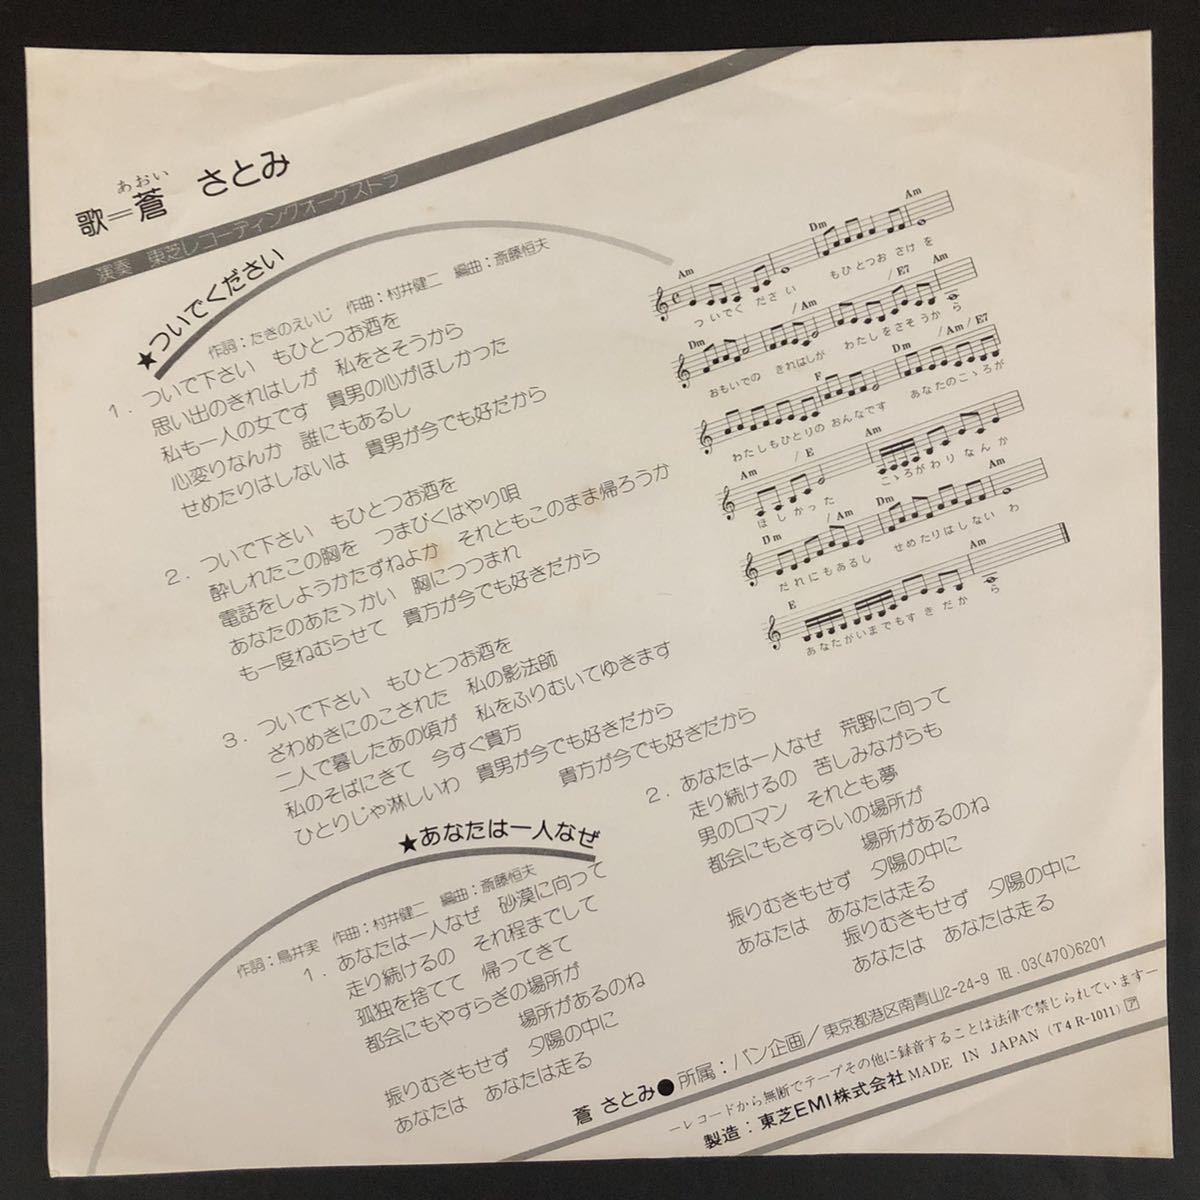 あおい
歌=蒼 さとみ
演奏 東芝レコーディングオーケストラ
★ついでください
作詞:たきのえいじ 作曲:村井健二 編曲:斎藤恒夫
1. ついで下さい もひとつお酒を
思い出のきれはしが 私をさそうから
私も一人の女です 貴男の心がほしかった
心変りなんか 誰にもあるし
せめたりはしないは 貴男が今でも好だから
2. ついで下さい もひとつお酒を
酔しれたこの胸を つまびくはやり唄
電話をしようかたずねよか それともこのまま帰ろうか
あなたのあたゝかい 胸につつまれ
も一度ねむらせて 貴方が今でも好きだから
3. ついで下さい もひとつお酒を
ざわめきにのこされた 私の影法師
二人で暮したあの頃が 私をふりむいてゆきます
私のそばにきて 今すぐ貴方
ひとりじゃ淋しいわ 貴男が今でも好きだから
貴方が今でも好きだから
Am Dm Am
ついでく ださい もひとつお さけを
Dm /Am /E7 Am
おもいでの きれはしが わたしをさそうから
F Dm /Am/E7
わたしもひとりの おんなです あなたのこゝろが
Am /E Am
ほしかった こゝろがわりなんか
Dm /Am Dm Am
だれにもあるし せめたりはしないわ
E Am
あなたがいまでもすきだから
★あなたは一人なぜ
作詞:鳥井実 作曲:村井健二 編曲:斎藤恒夫
1. あなたは一人なぜ 砂漠に向って
走り続けるの それ程までして
孤独を捨てて 帰ってきて
都会にもやすらぎの場所が
場所があるのね
振りむきもせず 夕陽の中に
あなたは あなたは走る
2. あなたは一人なぜ 荒野に向って
走り続けるの 苦しみながらも
男のロマン それとも夢
都会にもさすらいの場所が
場所があるのね
振りむきもせず 夕陽の中に
あなたは あなたは走る
振りむきもせず 夕陽の中に
あなたは あなたは走る
蒼 さとみ●所属:バン企画/東京都港区南青山2-24-9 TEL.03(470)6201
―レコードから無断でテープその他に録音することは法律で禁じられています―
製造:東芝EMI株式会社 MADE IN JAPAN (T4R-1011) ア